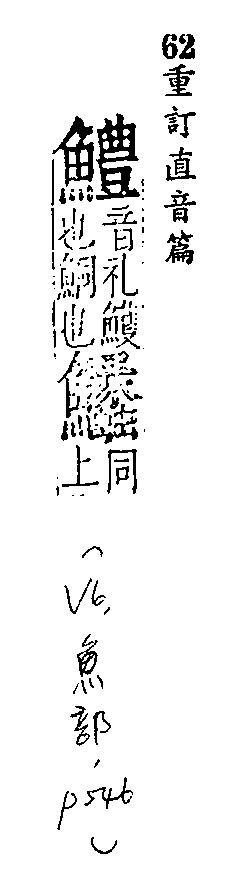 62重訂直音篇
鱧
音礼鱯
也鮦也
同
上
(V6,魚部,p546)